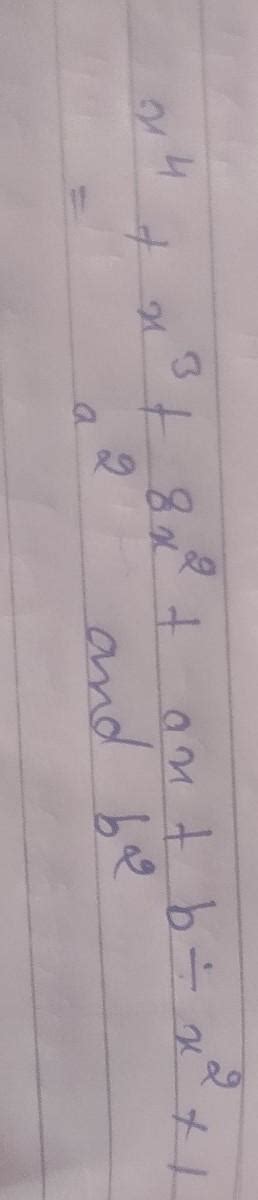 x⁴ + x³ + 8x² + ax + b ÷ x² + 1
= a² and b²